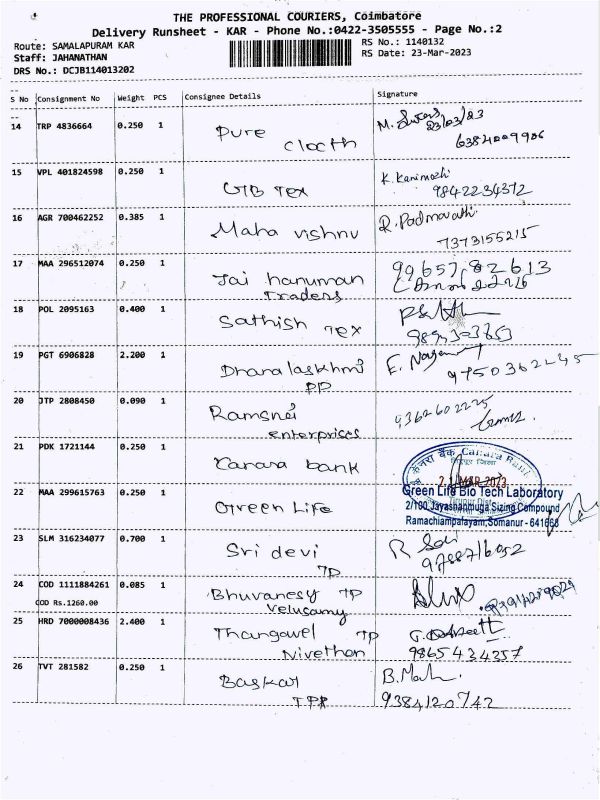 THE PROFESSIONAL COURIERS, Coimbatore
Delivery Runsheet - KAR - Phone No.:0422-3505555 - Page No.:2
Route: SAMALAPURAM KAR
RS No.: 1140132
Staff: JAHANATHAN
RS Date: 23-Mar-2023
DRS No.: DCJB114013202
S No Consignment No Weight PCS Consignee Details Signature
14 TRP 4836664 0.250 1 Pure 23/03/23
Clocth 6384009906
15 VPL 401824598 0.250 1 GTB Tex K. Kanimozhi
9842234372
16 AGR 700462252 0.385 1 Maha vishnu R. Padmavathi
7373155215
17 MAA 296512074 0.250 1 Jai hanuman 99657,82613
Traders
18 POL 2095163 0.400 1 Sathish Tex
19 PGT 6906828 2.200 1 Dhanalaskhmi E.
PP 9750362245
20 JTP 2808450 0.090 1 Ramsnei 9362602225
enterprises
21 PDK 1721144 0.250 1 Canara bank केनरा बैंक Canara Bank
MAR 2023
22 MAA 299615763 0.250 1 Green Life Green Life Bio Tech Laboratory
2/100,Jayashanmuga Sizing Compound
Ramachiampalayam,Somanur - 641668
23 SLM 316234077 0.700 1 Sri devi R
TP 9788716052
24 COD 1111884261 0.085 1 Bhuvanesy TP
COD Rs.1260.00 Velusamy
25 HRD 7000008436 2.400 1 Thangavel TP
Nivethan 9865434357
26 TVT 281582 0.250 1 Baskar B.
TPR 9384120742